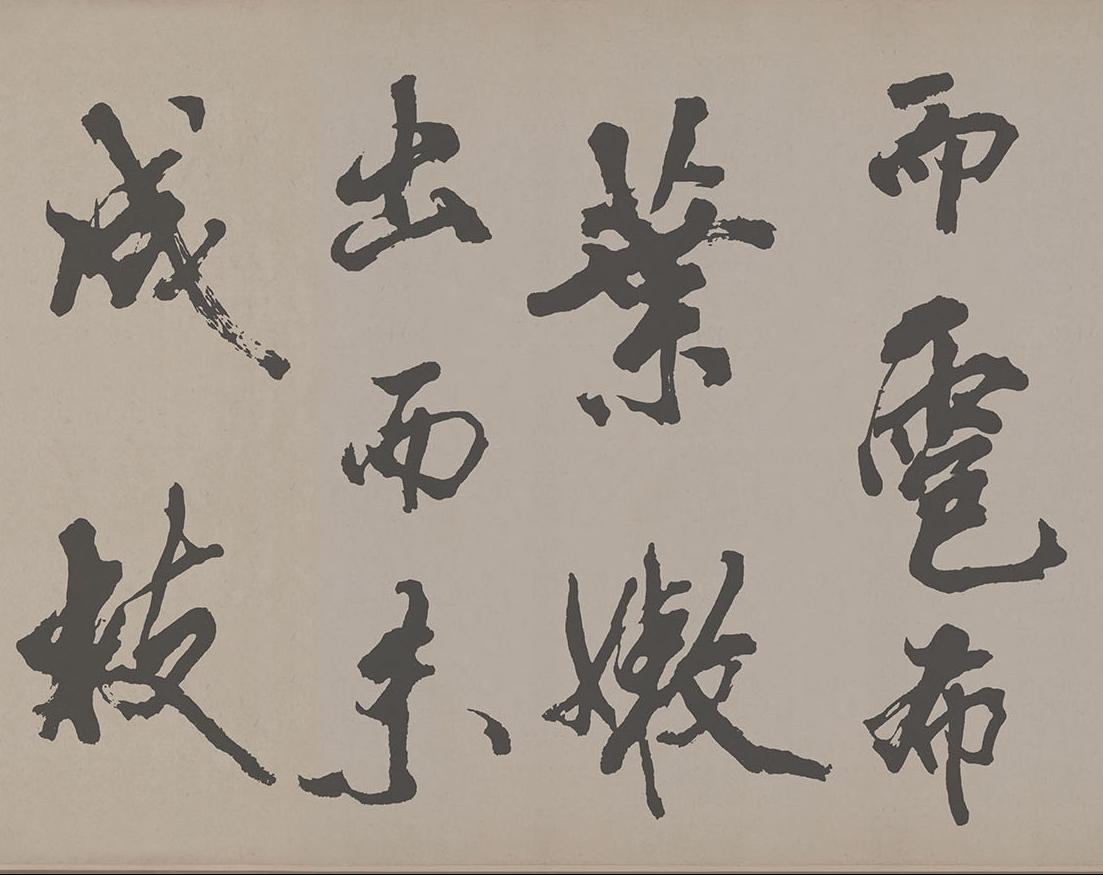 而雹布
葉嫩
出而未
成枝